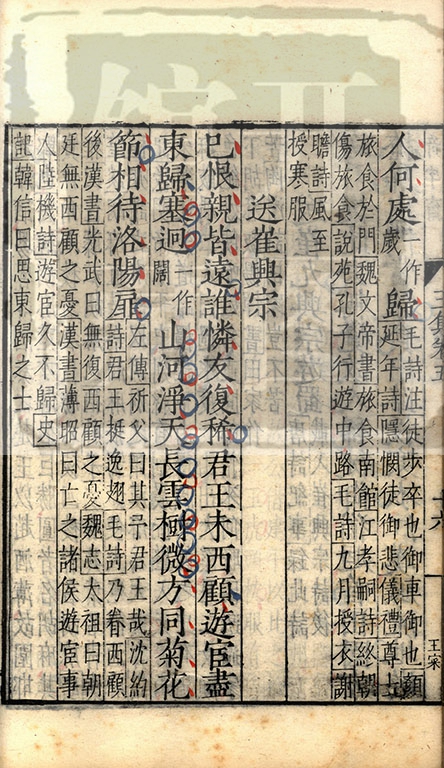 人何處一作歲歸毛詩注徒步卒也御車御也顏
延年詩隱憫徒御悲儀禮尊士
旅食於門魏文帝書旅食南館江孝嗣詩終朝
傷旅食說苑孔子行遊中路毛詩九月授衣謝
瞻詩風至
授寒服
送崔興宗
已恨親皆遠誰憐友復稀君王未西顧遊宦盡
東歸塞迥一作闊山河淨天長雲樹微方同菊花
節相待洛陽扉左傳祈父曰其子君王哉沈約
詩君王挺逸翅毛詩乃眷西顧
後漢書光武曰無復西顧之憂魏志太祖曰朝
廷無西顧之憂漢書薄昭曰亡之諸侯遊宦事
人陸機詩遊宦久不歸史
記韓信曰思東歸之士